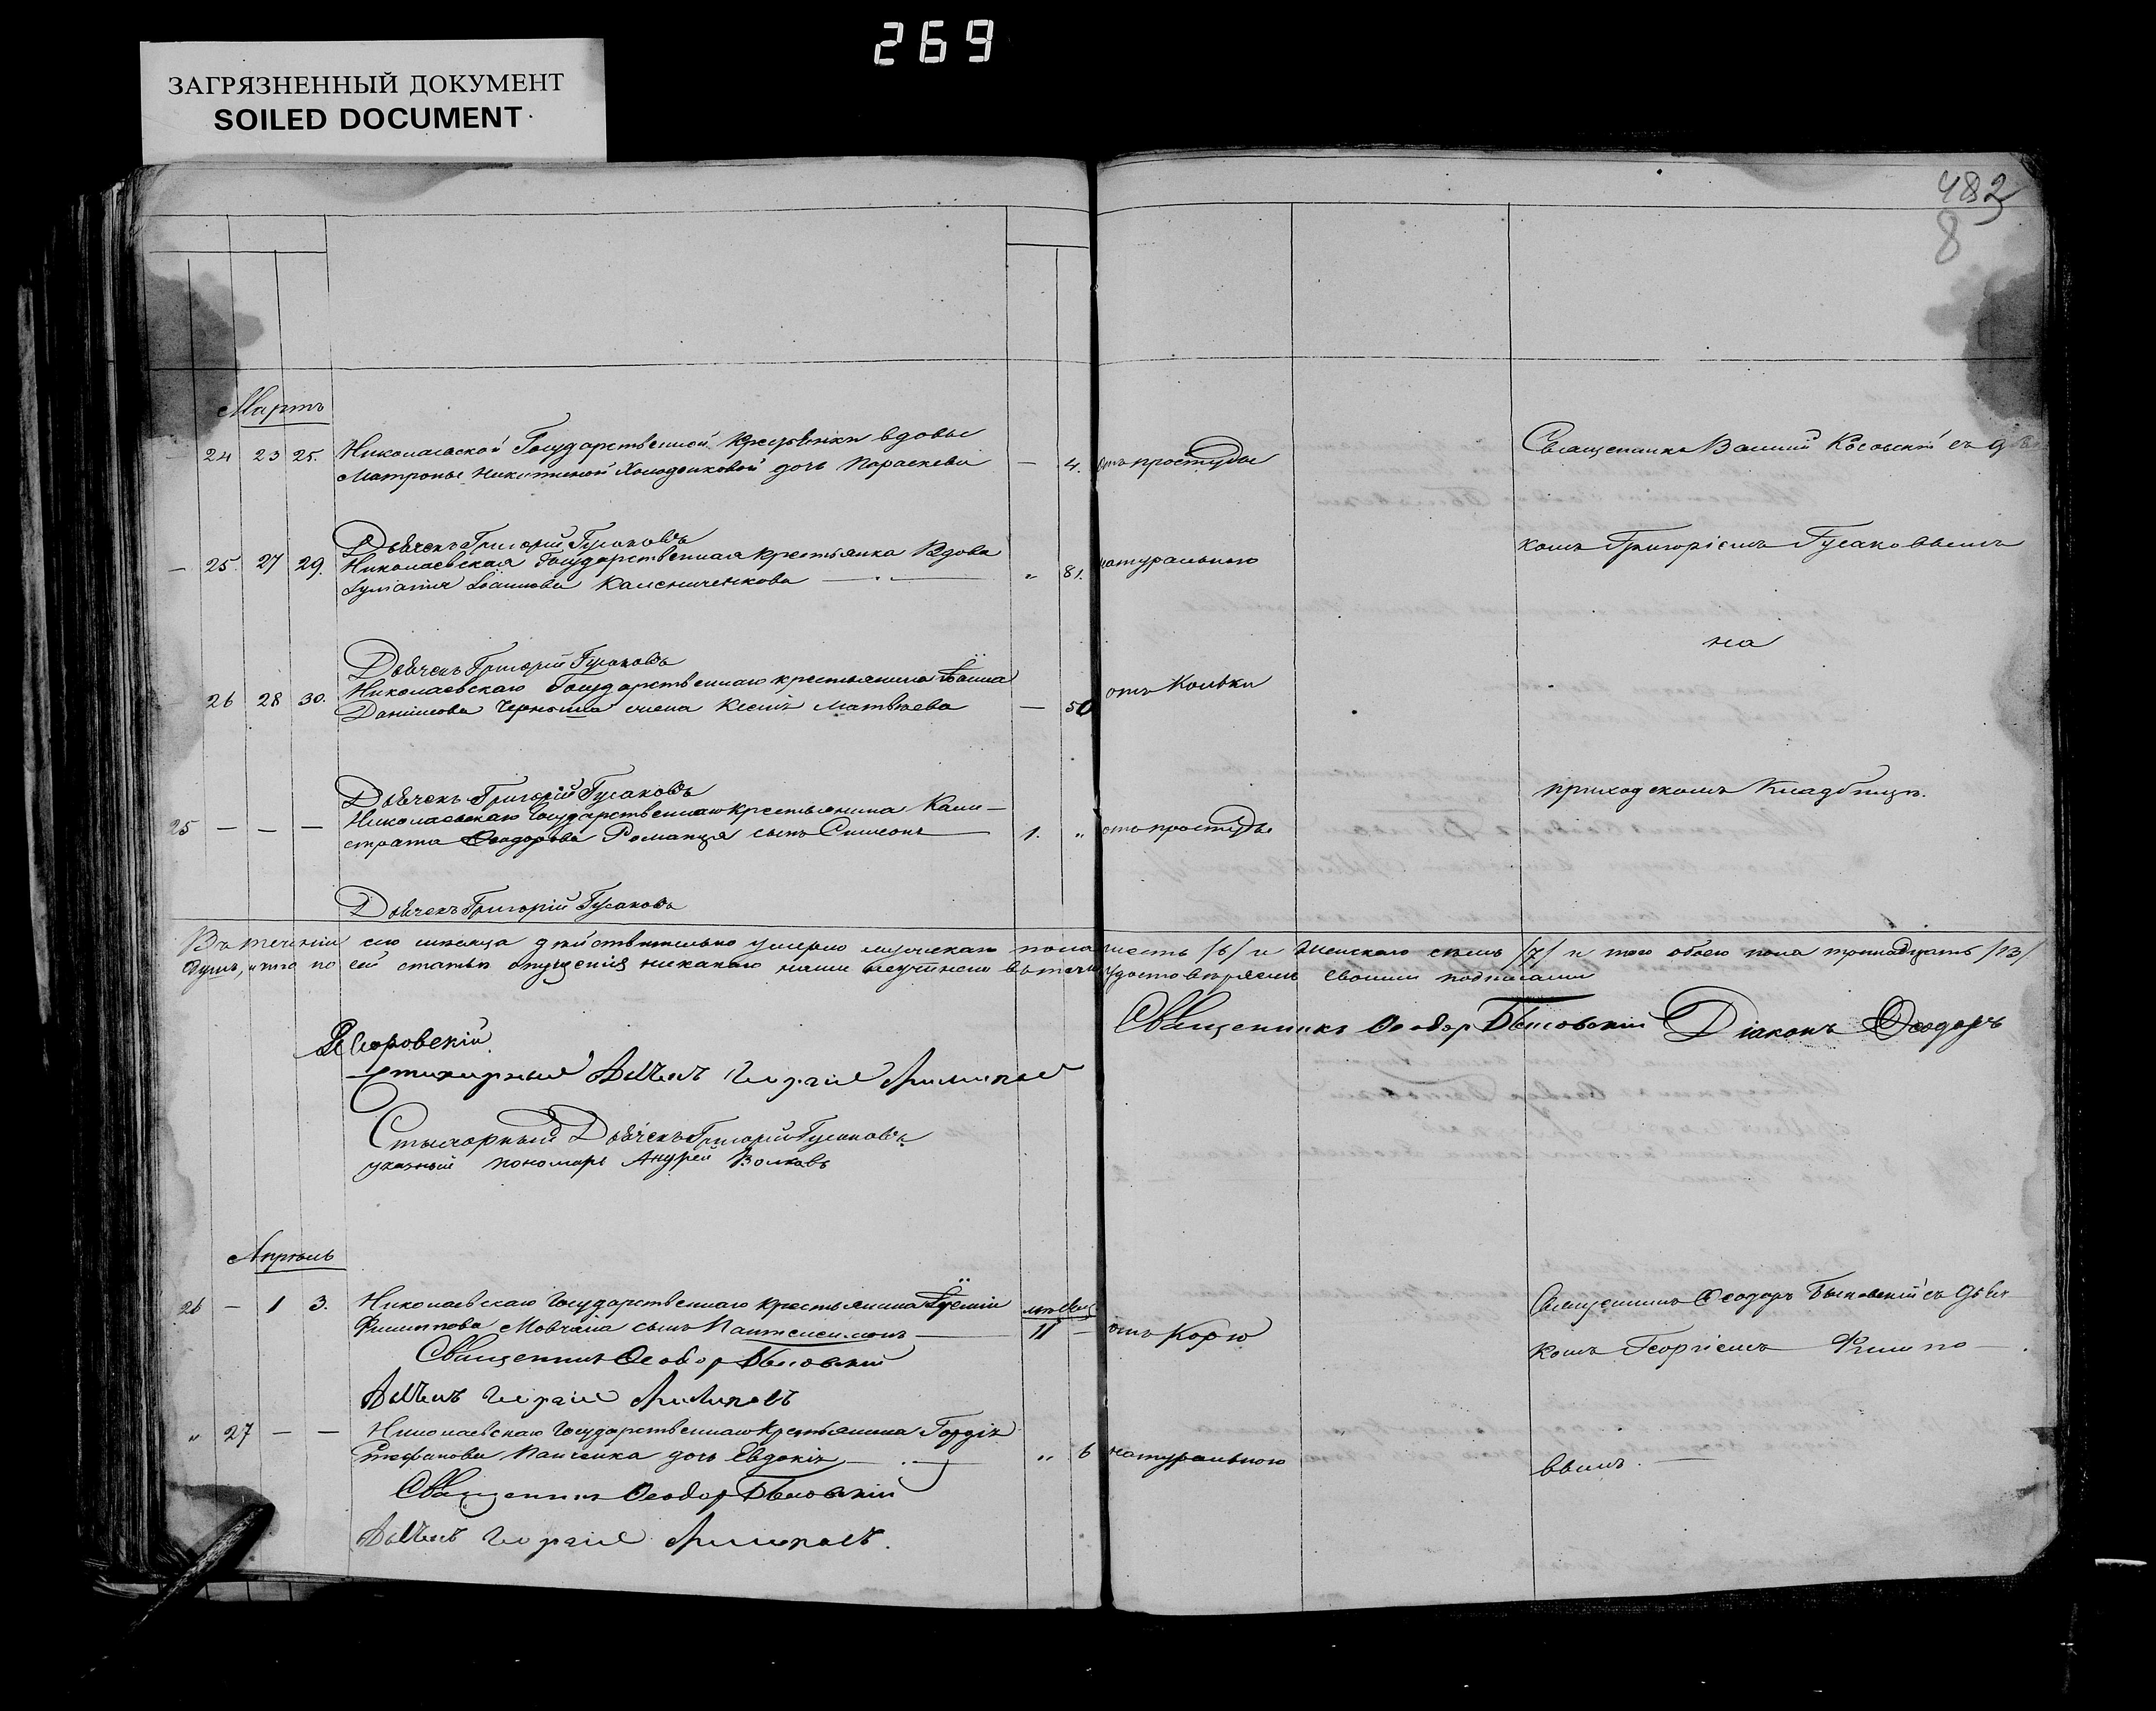 269
ЗАГРЯЗНЕННЫЙ ДОКУМЕНТ
SOILED DOCUMENT
482
8
Мартъ
24 23 25. Николаевской Государственной крестьянки вдовы
Матроны Никитиной Холодонковой дочь Параскева — 4. отъ простуды
Священникъ Василий съ дьяч
Дьячекъ Григорій Гусаковъ
— 25 27 29. Николаевская Государственная крестьянка Вдова
Іоаннова Калениченкова „ 81. натурально
комъ Григоріемъ Гусаковымъ
Дьячекъ Григорій Гусаковъ
26 28 30. Николаевскаго Государственнаго крестьянина Іоанна
Даніилова жена Ксенія Матвѣева — 50 отъ Кольки
на
Дьячекъ Григорій Гусаковъ
25 — — — Николаевскаго Государственнаго крестьянина Кали-
страта Ѳеодорова Романца сынъ Симеонъ 1. „ отъ простуды
приходскомъ Кладбищѣ.
Дьячекъ Григорій Гусаковъ
Въ теченіи сего мѣсяца дѣйствительно умерло мужескаго пола шесть /6/ и Женскаго семь /7/ и того обоего пола тринадцать /13/
душъ, и что по сей статьи опущенія никакого нами неучинено въ томъ удостовѣряемъ своими подписами
Священникъ Ѳеодоръ Быковскій Діаконъ Ѳеодоръ
Стихарный Дьячекъ Георгій Филиповъ
Стихарный Дьячекъ Григорій Гусаковъ
указный пономарь Андрей Волковъ
Апрѣль
26 — 1 3. Николаевскаго Государственнаго крестьянина
Филиппова Мовчана сынъ Пантелеимонъ 11 — отъ Кору
Священникъ Ѳеодоръ Быковскій съ дьяч
Священникъ Ѳеодоръ Быковскій
комъ Георгіемъ Филипо—
Дьячекъ Георгій Филиповъ
„ 27 — — Николаевскаго Государственнаго крестьянина Гордія
Стефанова Панченка дочь Евдокія „ 6 натурально
вымъ.
Священникъ Ѳеодоръ Быковскій
Дьячекъ Георгій Филиповъ.